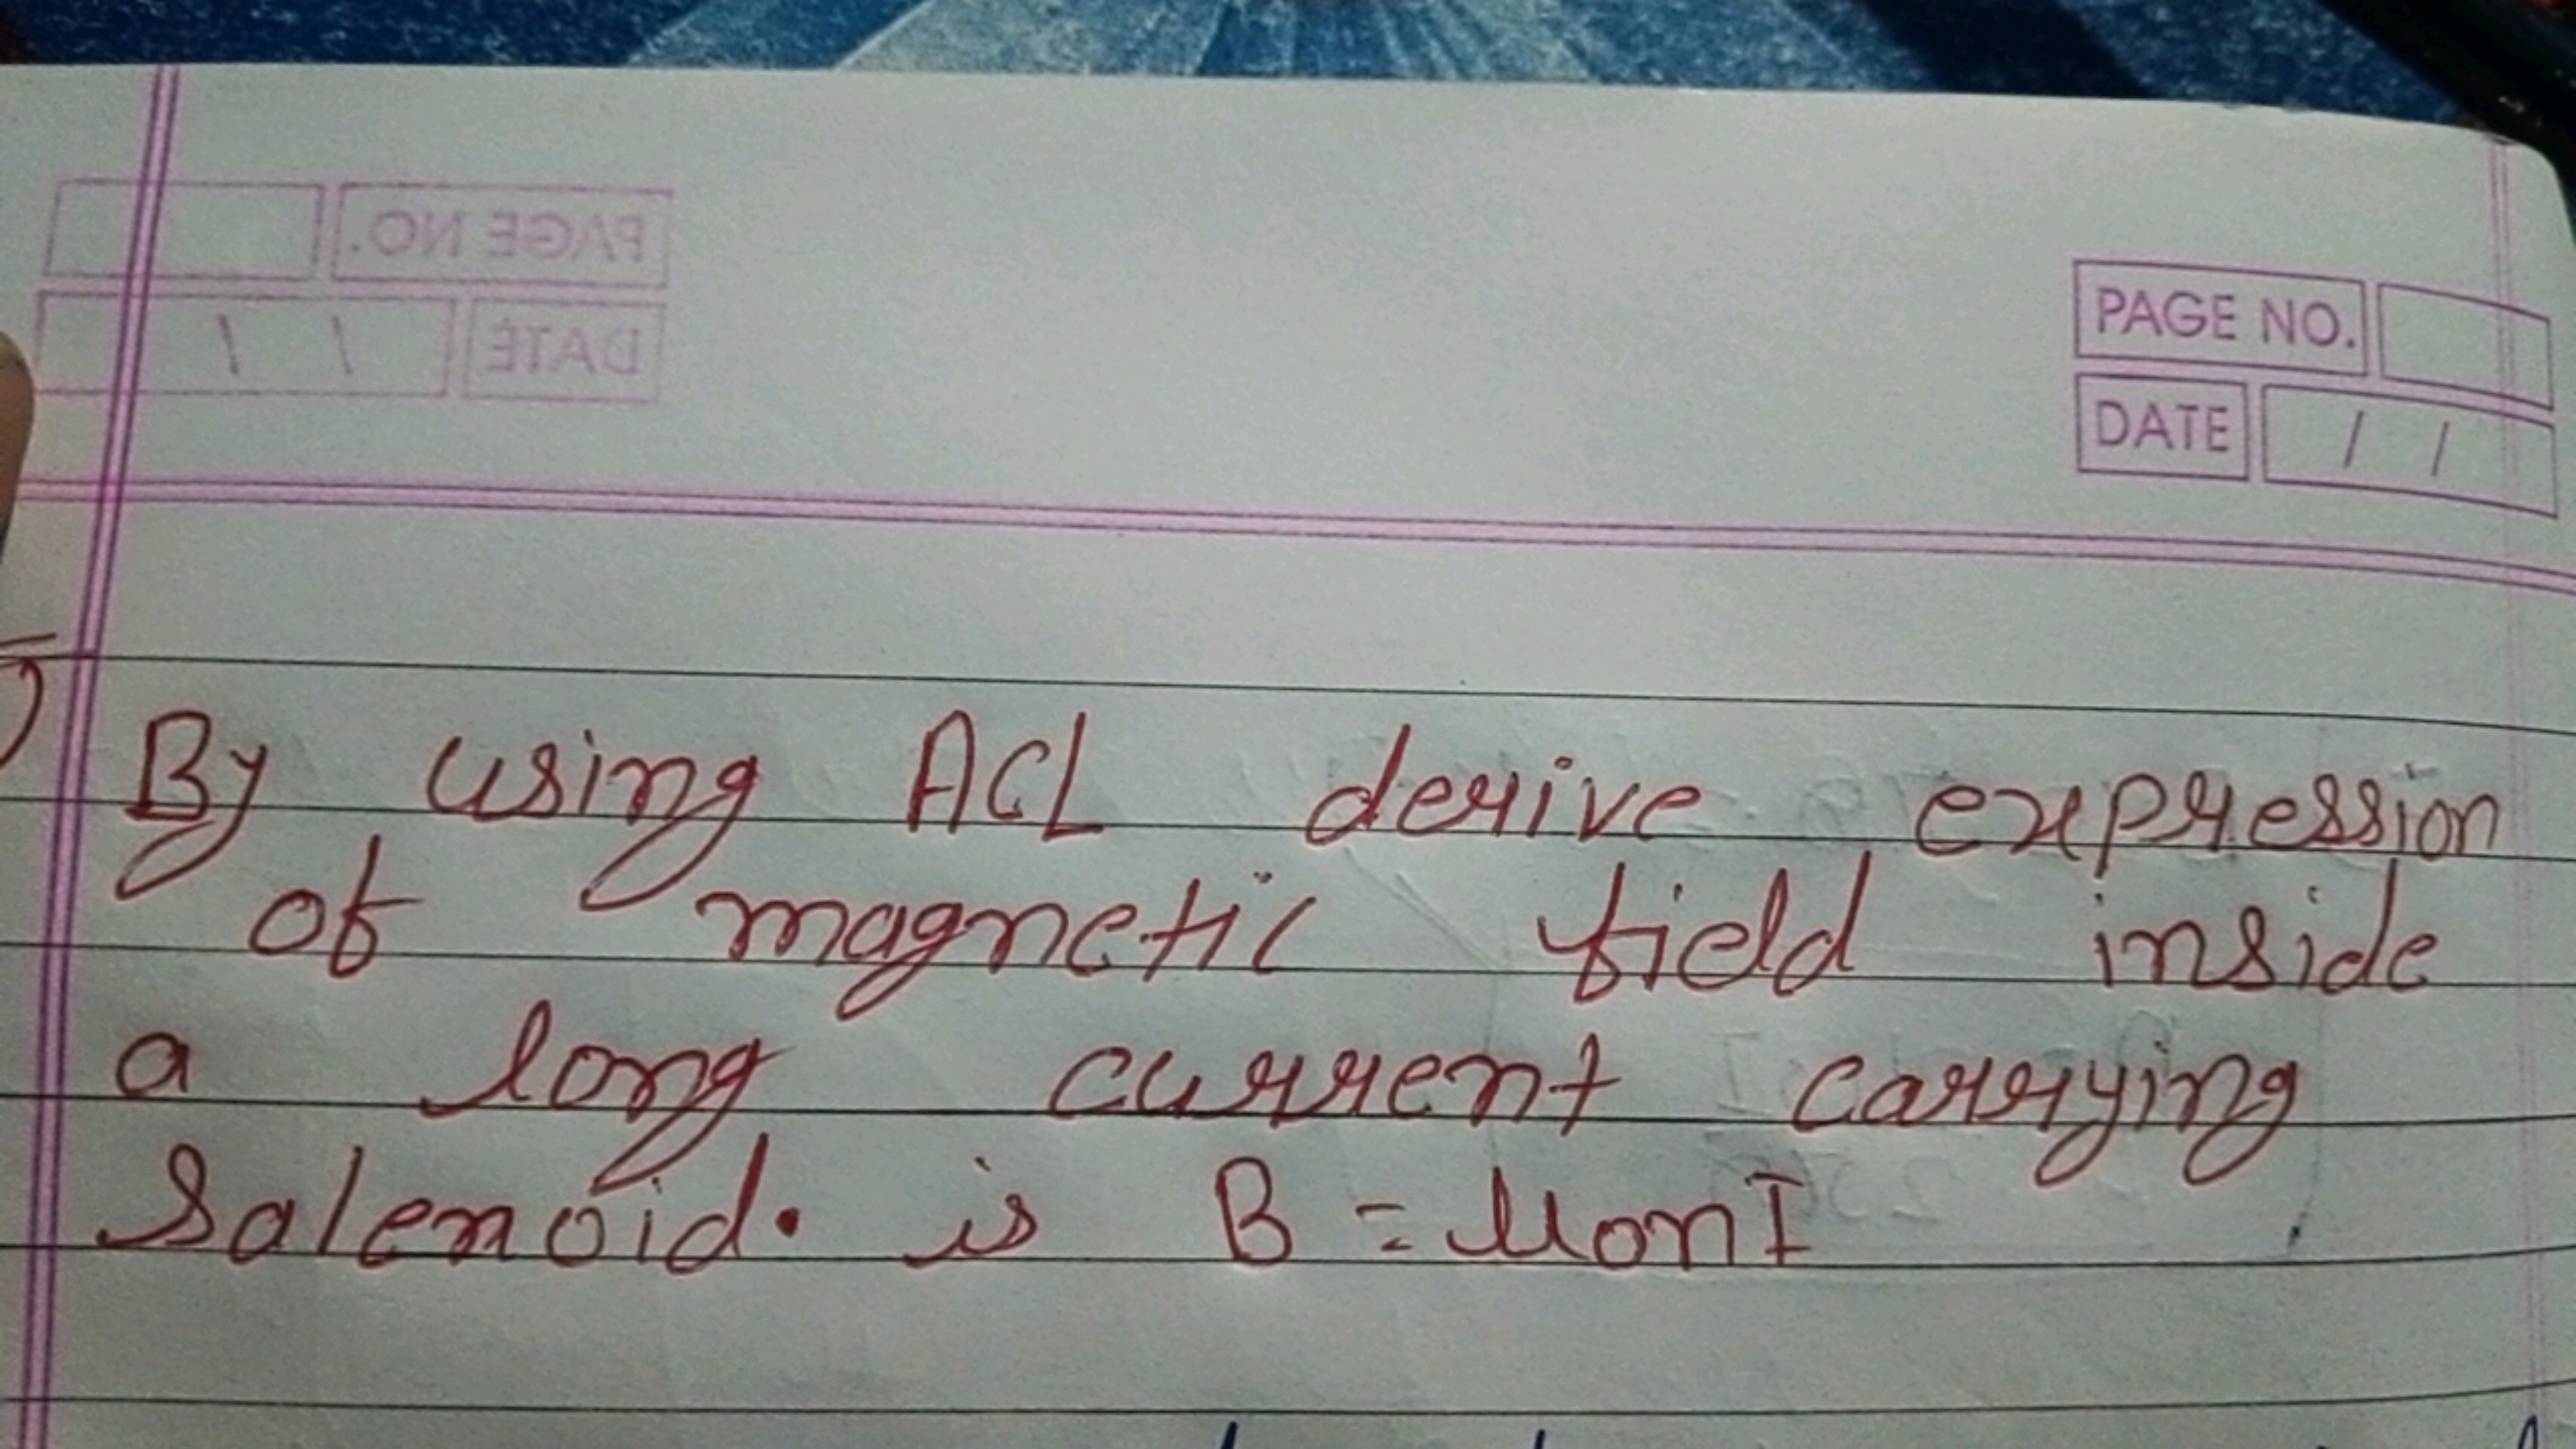 PAGE NO.
DATE / /
PAGE NO.
DATE / /
By using ACL derive expression
of magnetic field inside
a long current carrying
Salenoid. is B = μonI